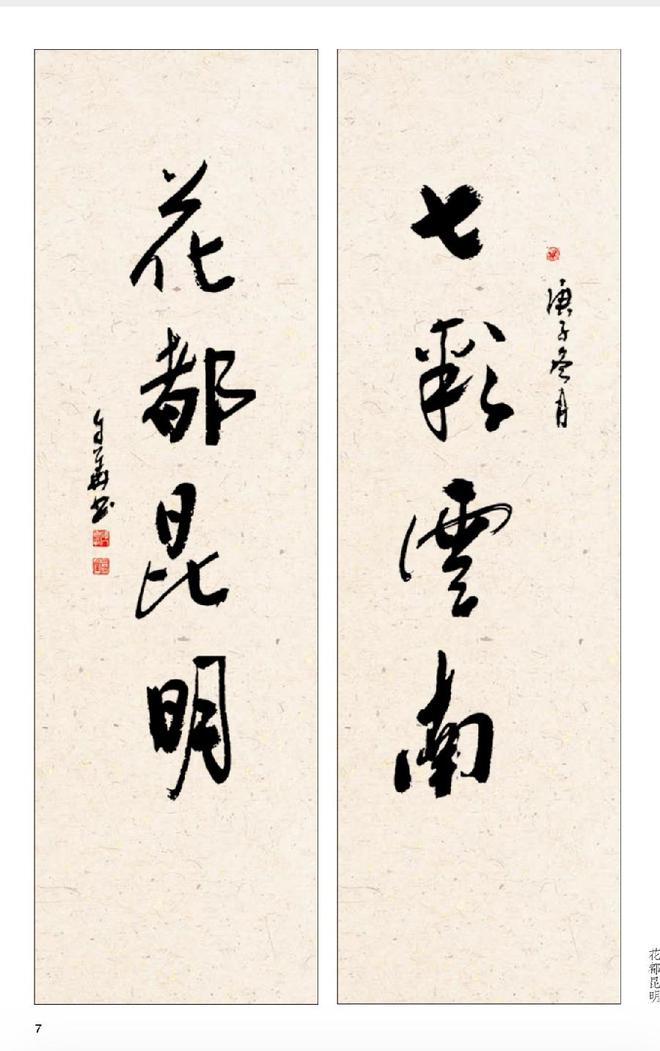 七彩雲南
庚子冬月
花都昆明
書
花都昆明
7